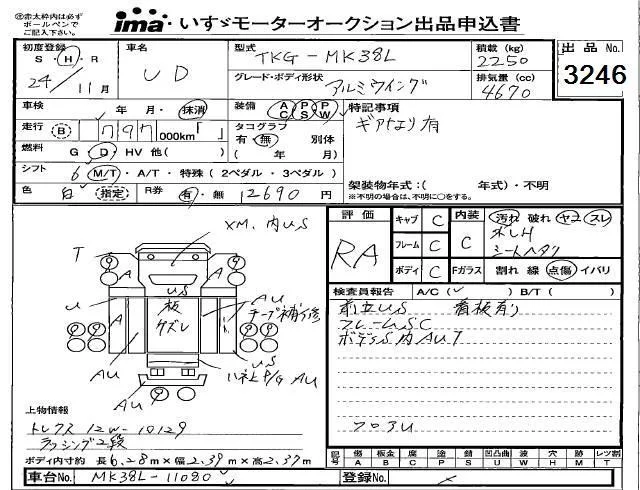 ※赤太枠内は必ず
ボールペンで
ご記入下さい。
ima いすゞモーターオークション出品申込書
初度登録
S・H・R
24/11月
車名
UD
型式
TKG-MK38L
グレード・ボディ形状
アルミウイング
積載(kg)
2250
排気量(cc)
4670
出品No.
3246
車検 年 月・抹消
装備 AC PS PW
特記事項
走行 B 797 000km「 」
タコグラフ
有・無 別体
( 年 月)
燃料 G・D・HV 他( )
シフト 6 M/T・A/T・特殊(2ペダル・3ペダル)
架装物年式:( 年式)・不明
※不明の場合は、不明に○をする。
色 白 (指定) R券 有・無 12690 円
評価 RA
キャブ C
フレーム C
ボディ C
内装 C
Fガラス
汚れ 破れ ヤコ スレ
シートヘタリ
割れ 線 点傷 イパリ
検査員報告 A/C( ) B/T( )
前立US 看板有り
フレームSC
ボディS内AUT
フロアU
XM.内US
T
A
A
US
板
ケズレ
AU
テープ補修
U
A
AU
US
ハネヒP/G AU
AU
上物情報
トレクス 12W-10129
ラッシング2段
ボディ内寸約 長6.28m×幅2.39m×高2.37m
記号
傷 A
板金 B
腐 C
塗 P
錆 S
凹凸曲 U
波 W
穴 H
跡 M
レツ割 T
車台No. MK38L-11080
登録No.